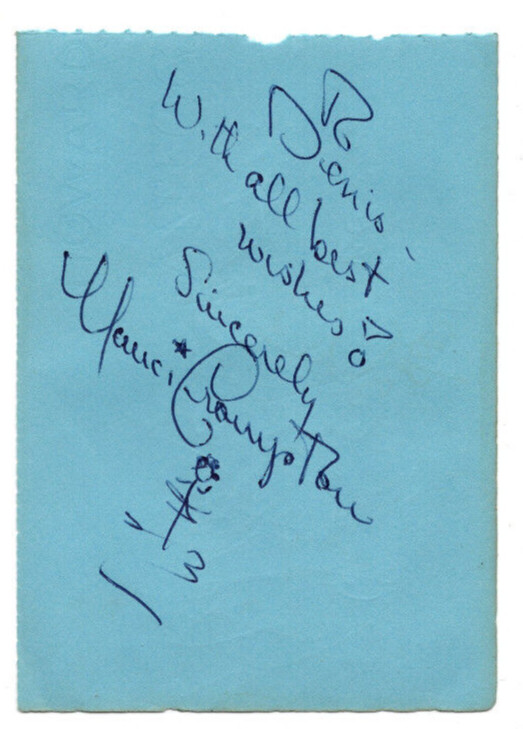 To Denis -
With all best
wishes!
Sincerely
Nanci Crompton